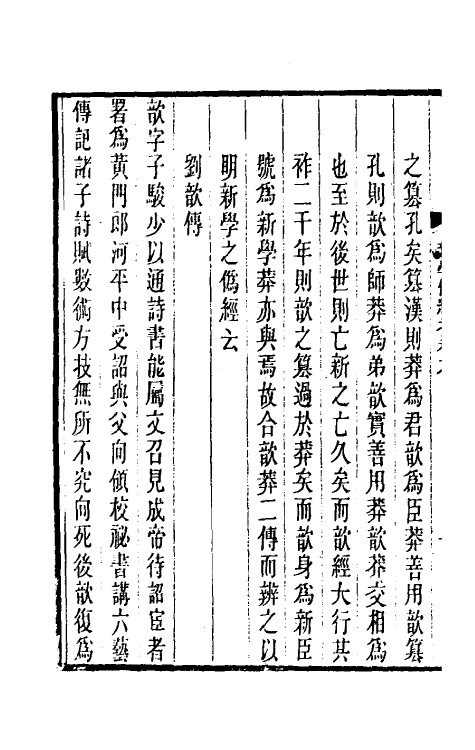 之篡孔矣篡漢則莽爲君歆爲臣莽善用歆篡
孔則歆爲師莽爲弟歆實善用莽歆莽交相爲
也至於後世則亡新之亡久矣而歆經大行其
祚二千年則歆之篡過於莽矣而歆身爲新臣
號爲新學莽亦與焉故合歆莽二傳而辨之以
明新學之僞經云
劉歆傳
歆字子駿少以通詩書能屬文召見成帝待詔宦者
署爲黃門郎河平中受詔與父向領校祕書講六藝
傳記諸子詩賦數術方技無所不究向死後歆復爲